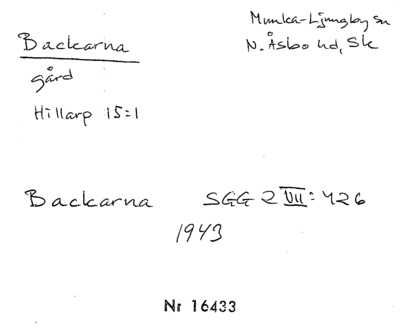 Backarna
Munka-Ljungby sn
N. Åsbo hd, Sk
gård
Hillarp 15:1
Backarna SGG 2 VII: 426
1943
Nr 16433